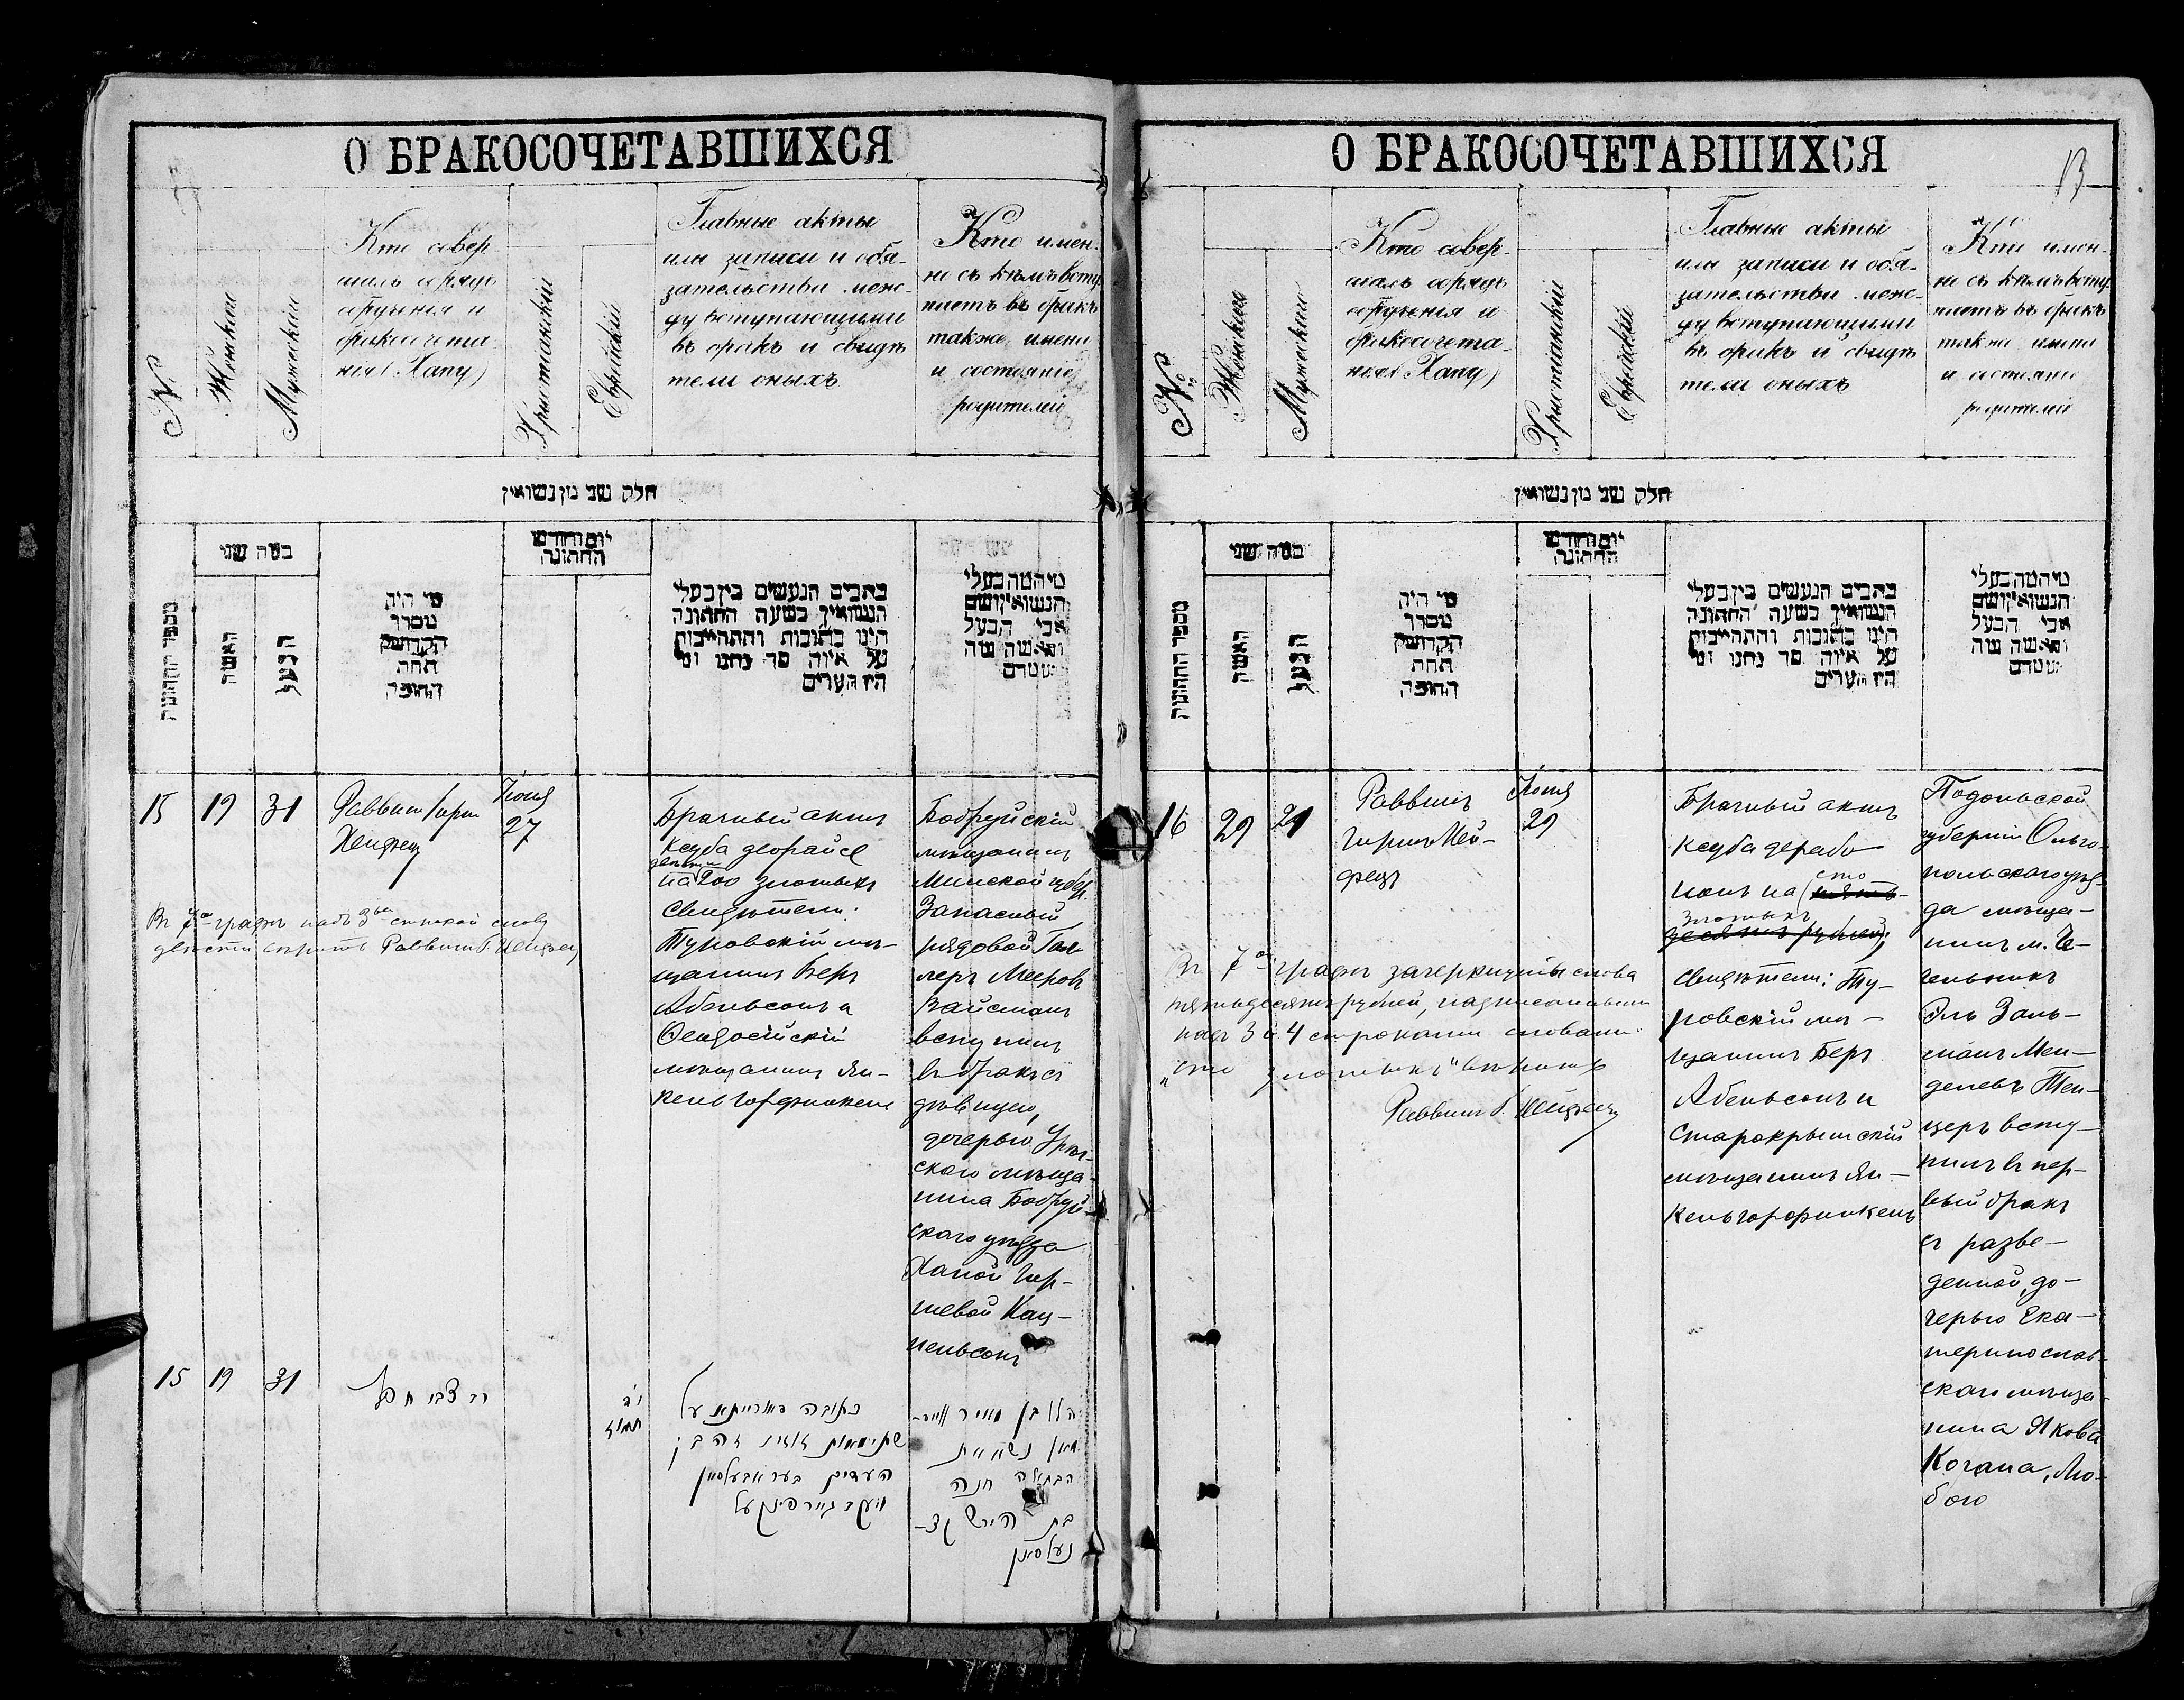 О БРАКОСОЧЕТАВШИХСЯ
№
Женскій
Мужескій
Кто совер-
шалъ обрядъ
обрученія и
бракосочета-
нія (Хапу)
Христіанскій
Еврейскій
Главные акты
или записи и обя-
зательства меж-
ду вступающими
въ бракъ и свидѣ
тели оныхъ
Кто имен-
но съ кѣмъ всту
паетъ въ бракъ
также имена
и состояніе
родителей
חלק שני מן נשואין
מספר החתונות
כמה שני
האשה
הבעל
מי היה
מסדר
הקדושין
תחת
החופה
יום וחודש
החתונה
כתבים הנעשים בין בעלי
הנשואין בשעה החתונה
היינו כתובות והתחייבות
על איזה סך נתנו ומי
היו העדים
מי המה בעלי
הנשואין ושם
אבי הבעל
והאשה ומה
מעמדם
15
19
31
Раввинъ Гирш
Хейфец
Іюня
27
Брачный актъ
Ксуба деорайсе
двѣсти
на 200 злотыхъ
Свидѣтели:
Туровскій мѣ-
щанинъ Беръ
Абельсонъ и
Ѳеодосійскій
мѣщанинъ Ян-
кель Горфинкель
Бобруйскій
мѣщанинъ
Минской губер.
Запасный
рядовой
Мееровъ
Вайсманъ
вступилъ
въ бракъ съ
дѣвицею,
дочерью
скаго мѣща-
нина Бобруй-
скаго уѣзда
Ханой Гир-
шевой Кац-
нельсонъ
Въ 7ой графѣ надъ 3ьей строкой слову
двѣсти вѣрить Раввинъ Г. Хейфец
15
19
31
ר׳ צבי חפץ
י״ד
תמוז
כתובה דאורייתא על
שתי מאות זוזים זהב
העדים בער אבעלסאן
יענקל גורפינקעל
הלל בן מאיר ווייס-
מאן נשא את
הבתולה חנה
בת הירש קצ-
נעלסאן
О БРАКОСОЧЕТАВШИХСЯ
13
№
Женскій
Мужескій
Кто совер-
шалъ обрядъ
обрученія и
бракосочета-
нія (Хапу)
Христіанскій
Еврейскій
Главные акты
или записи и обя-
зательства меж-
ду вступающими
въ бракъ и свидѣ
тели оныхъ
Кто имен-
но съ кѣмъ всту
паетъ въ бракъ
также имена
и состояніе
родителей
חלק שני מן נשואין
מספר החתונות
כמה שני
האשה
הבעל
מי היה
מסדר
הקדושין
תחת
החופה
יום וחודש
החתונה
כתבים הנעשים בין בעלי
הנשואין בשעה החתונה
היינו כתובות והתחייבות
על איזה סך נתנו ומי
היו העדים
מי המה בעלי
הנשואין ושם
אבי הבעל
והאשה ומה
מעמדם
16
29
21
Раввинъ
Гиршъ Хей-
фецъ
Іюня
29
Брачный актъ
Ксуба дерабо
нонъ на (пять-
сто
злотыхъ
десятъ рублей;
Свидѣтели: Ту-
ровскій мѣ-
щанинъ Беръ
Абельсонъ и
Старокрымскій
мѣщанинъ Ян-
кель Горфинкель
Подольской
губерніи Ольго-
польскаго уѣз-
да мѣща-
нинъ м. Че-
чельникъ
Эль Заль-
манъ Мен-
делевъ Тен-
церъ всту-
пилъ въ пер-
вый бракъ
съ разве-
денной, до-
черью Ека-
теринослав-
скаго мѣща-
нина Якова
Когана, Лю-
бою
Въ 7ой графѣ зачеркнуты слова
пятьдесятъ рублей, надписаннымъ
надъ 3 и 4 строками словамъ
„сто злотыхъ" вѣрить
Раввинъ Г. Хейфец